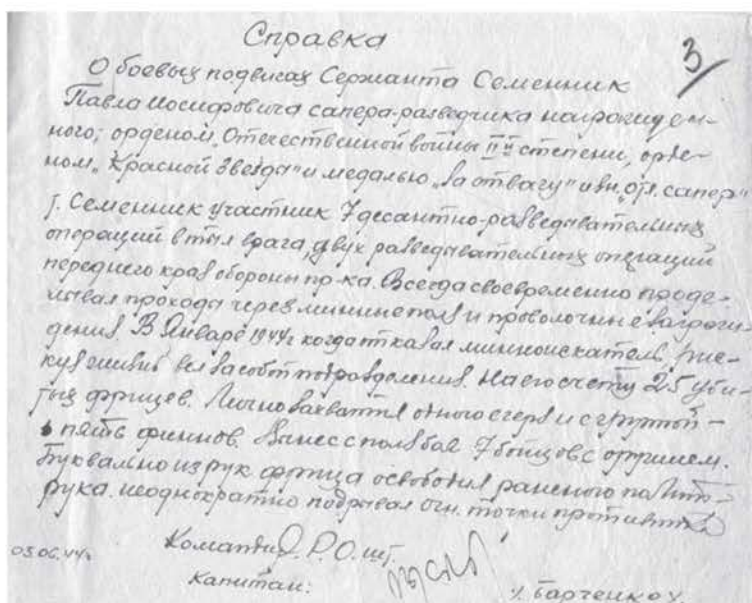 Справка
3
О боевых подвигах Сержанта Семенник
Павла Иосифовича сапера-разведчика награжден-
ного; орденом „Отечественной войны II й степени, орде-
ном „Красной Звезда" и медалью „За отвагу" и зн. „Отл. сапер"
т. Семенник участник 7 десантно-разведывательных
операций в тыл врага, двух разведывательных операций
переднего края обороны пр-ка. Всегда своевременно проде-
лывал прохода через минные поля и проволочные загражд-
дения. В Январе 1944г когда отказал миноискатель, рис-
куя жизнью вел за собой подразделения. На его счету 25 уби-
тых фрицев. Лично захватил одного егеря и с группой -
пять финнов. Вынес с поля боя 7 бойцов с оружием.
Буквально из рук фрица освободил раненого полит-
рука. неоднократно подрывал огн. точки противника
03.06.44г
Командир Р.О. шт.
Капитан:
/. Барченко /.